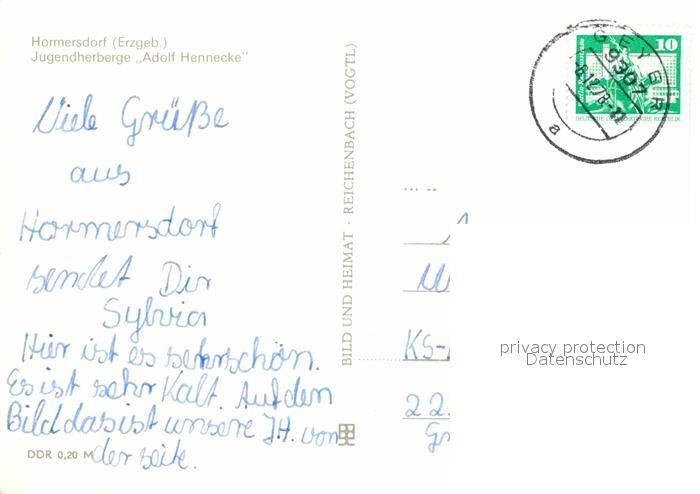 Hormersdorf (Erzgeb.)
Jugendherberge „Adolf Hennecke"
Viele Grüße
aus
Hormersdorf
sendet Dir
Sylvia
Hier ist es sehr schön.
Es ist sehr Kalt. Auf den
Bild das ist unsere J.H. von
der seite.
DDR 0,20 M
BILD UND HEIMAT · REICHENBACH (VOGTL)
GEYER
9307
a
10
DEUTSCHE DEMOKRATISCHE REPUBLIK
KS-
22.
Gr
privacy protection
Datenschutz